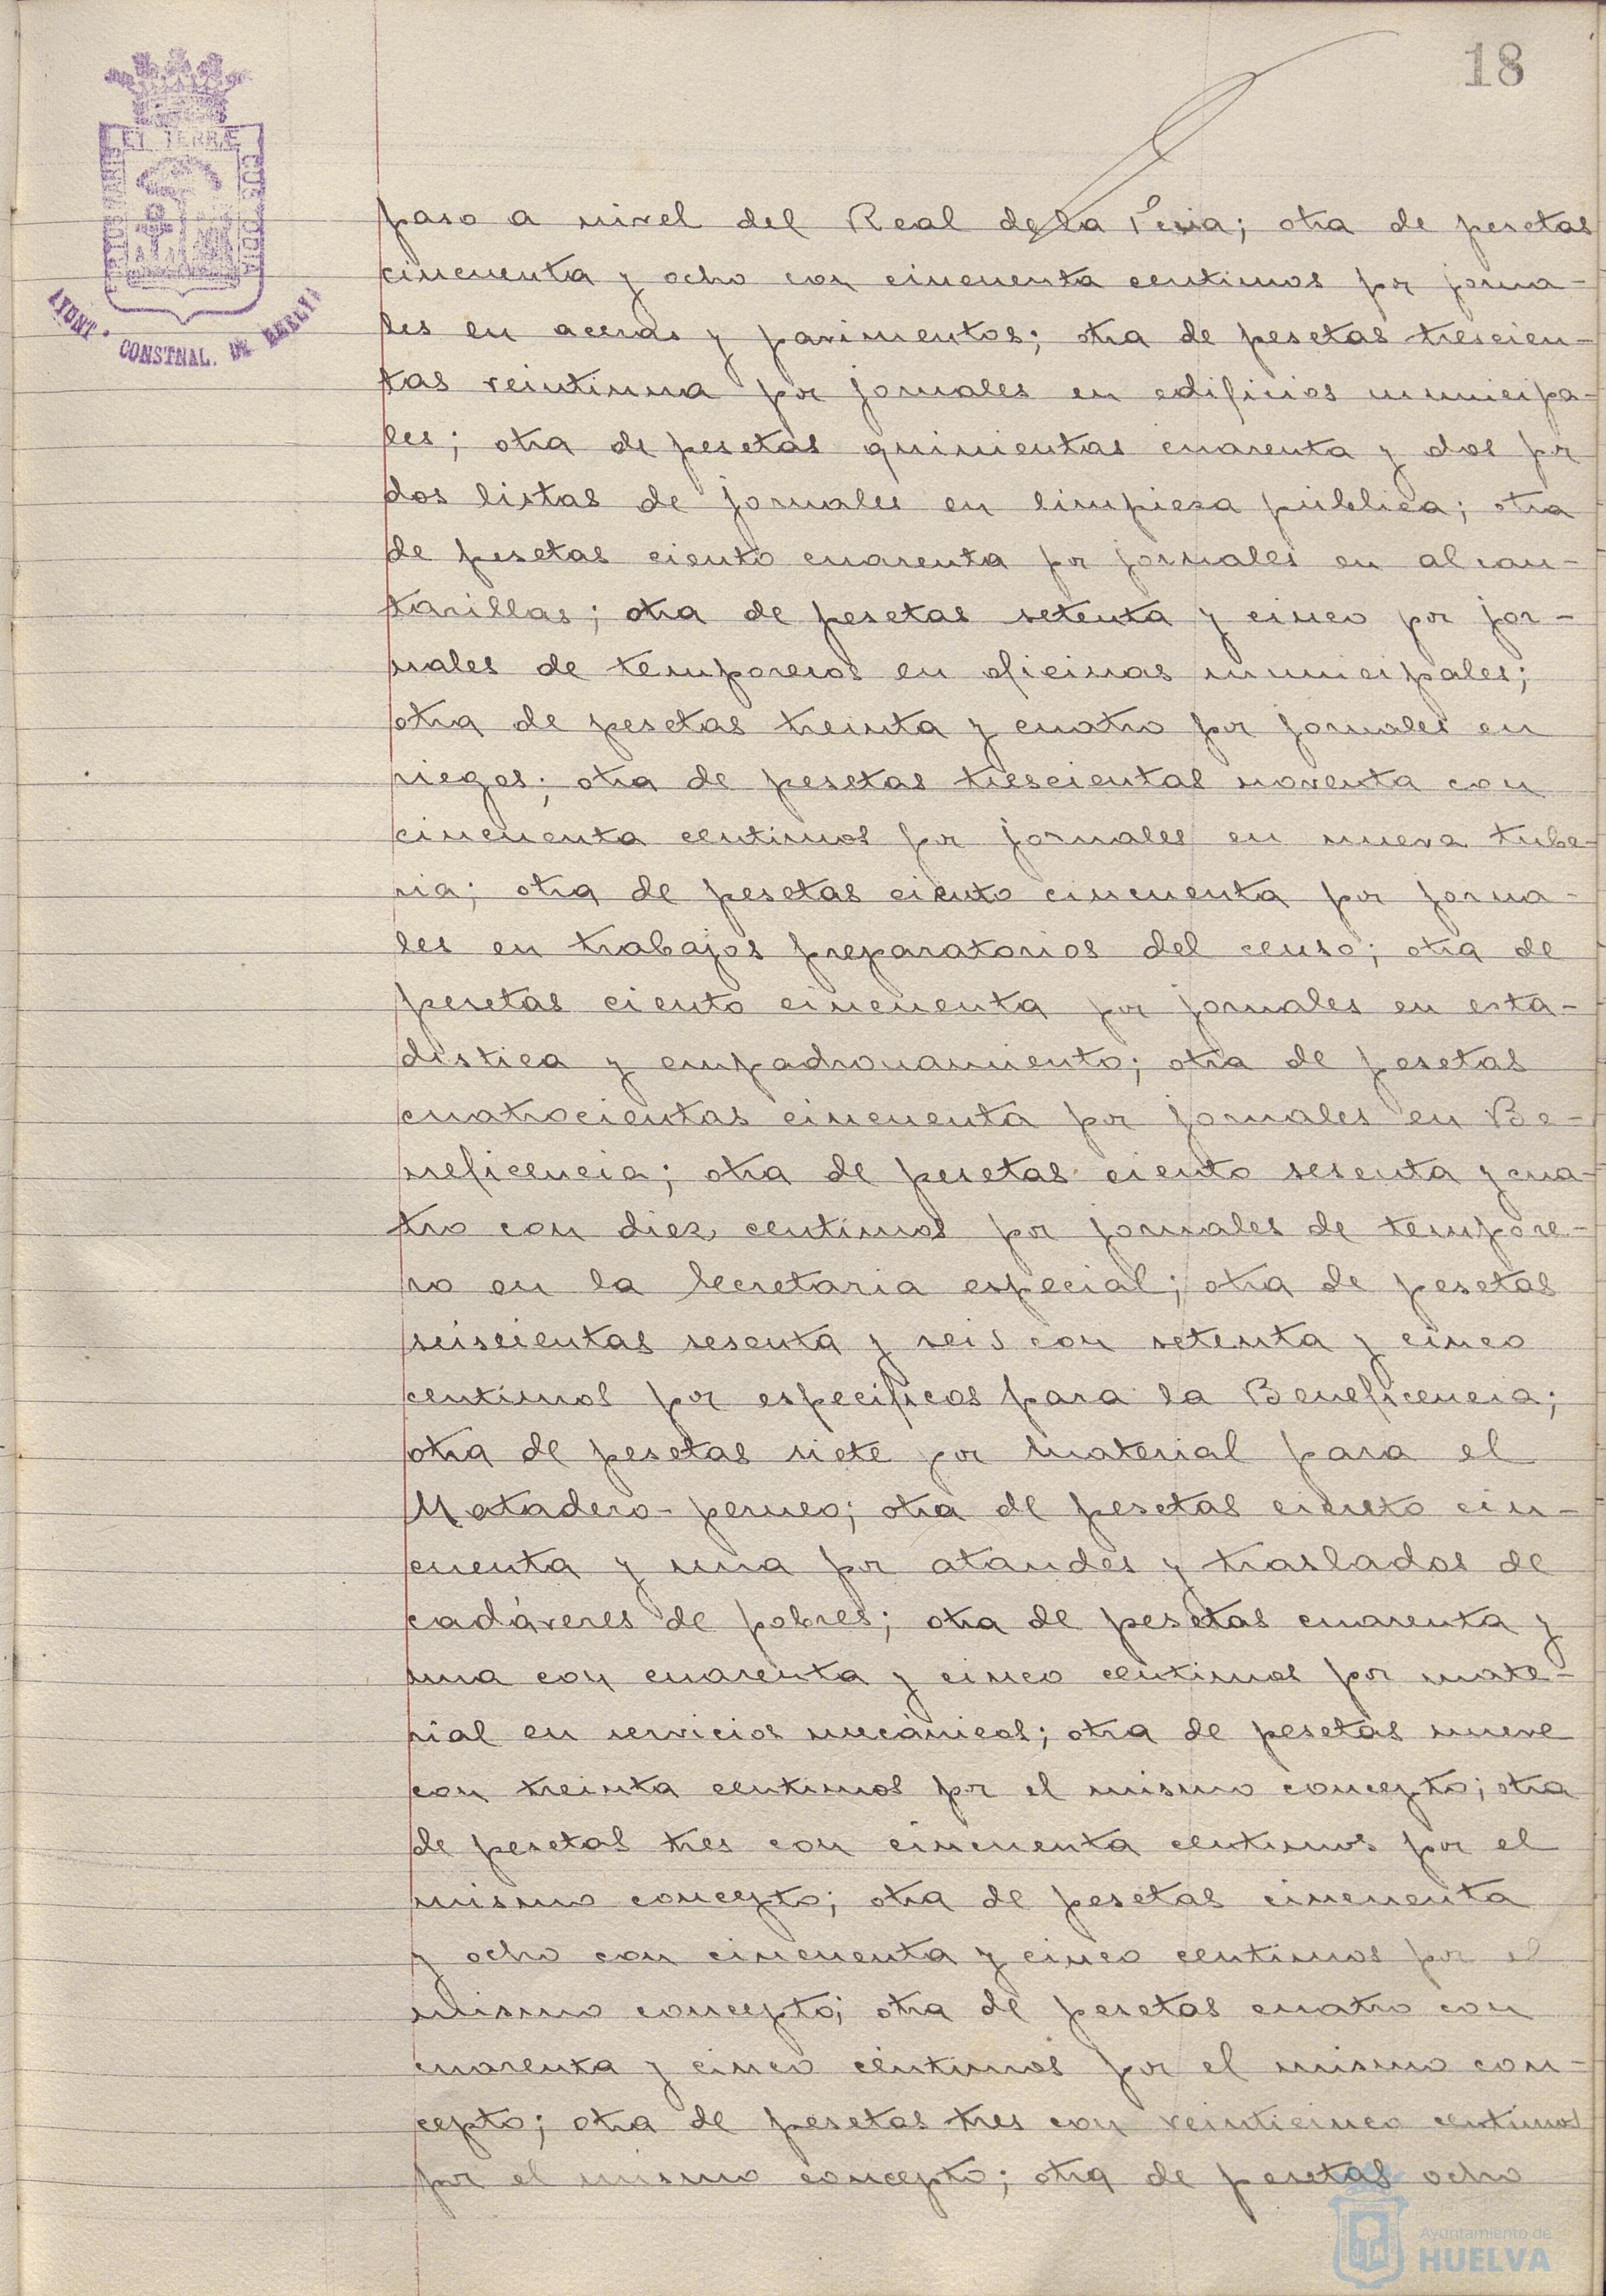 18
ET TERRÆ
PORTUS MARIS
CUSTODIA
AYUNT. CONSTNAL. DE HUELVA
paso a nivel del Real de la Feria; otra de pesetas
cincuenta y ocho con cincuenta centimos por jorna-
les en aceras y pavimentos; otra de pesetas trescien-
tas veintiuna por jornales en edificios municipa-
les; otra de pesetas quinientas cuarenta y dos por
dos listas de jornales en limpieza pública; otra
de pesetas ciento cuarenta por jornales en alcan-
tarillas; otra de pesetas setenta y cinco por jor-
nales de temporeros en oficinas municipales;
otra de pesetas treinta y cuatro por jornales en
riegos; otra de pesetas trescientas noventa con
cincuenta centimos por jornales en nueva tube-
ria; otra de pesetas ciento cincuenta por jorna-
les en trabajos preparatorios del censo; otra de
pesetas ciento cincuenta por jornales en esta-
distica y empadronamiento; otra de pesetas
cuatrocientas cincuenta por jornales en Be-
neficencia; otra de pesetas ciento sesenta y cua-
tro con diez centimos por jornales de tempore-
ro en la Secretaria especial; otra de pesetas
seiscientas sesenta y seis con setenta y cinco
centimos por especificos para la Beneficencia;
otra de pesetas siete por material para el
Matadero-perneo; otra de pesetas ciento cin-
cuenta y una por ataudes y traslados de
cadáveres de pobres; otra de pesetas cuarenta y
una con cuarenta y cinco centimos por mate-
rial en servicios mecánicos; otra de pesetas nueve
con treinta centimos por el mismo concepto; otra
de pesetas tres con cincuenta centimos por el
mismo concepto; otra de pesetas cincuenta
y ocho con cincuenta y cinco centimos por el
mismo concepto; otra de pesetas cuatro con
cuarenta y cinco céntimos por el mismo con-
cepto; otra de pesetas tres con veinticinco centimos
por el mismo concepto; otra de pesetas ocho
Ayuntamiento de
HUELVA